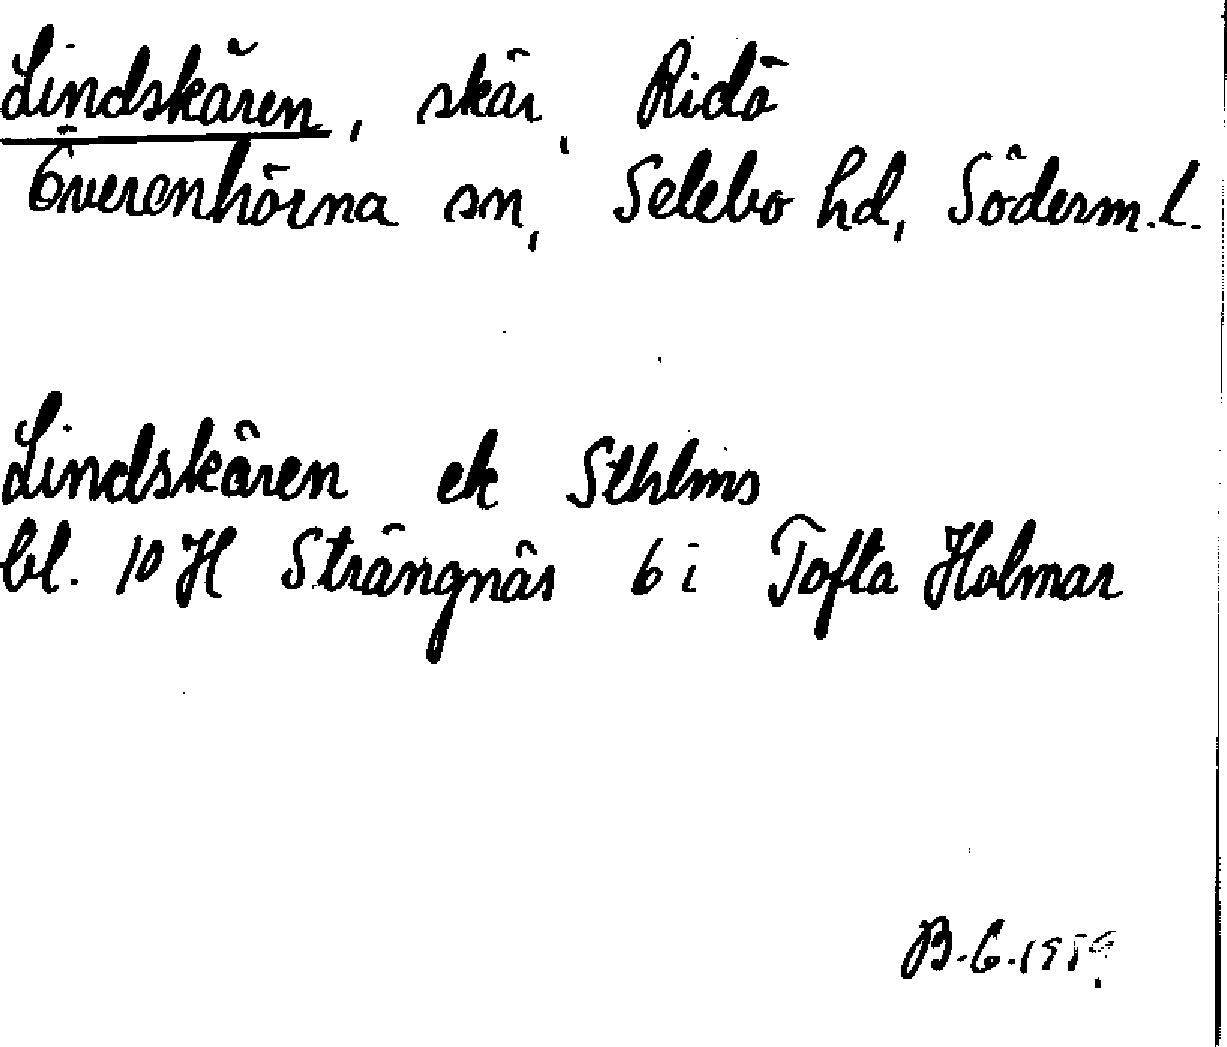 Lindskären, skär, Ridö
Överenhörna sn, Selebo hd, Söderm.l.
Lindskären ek Sthlms
bl. 10 H Strängnäs 6 i Tofta Holmar
B.G.